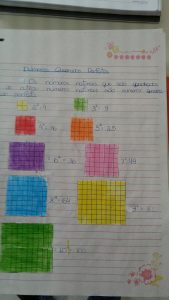 Números Quadrados Perfeitos
Os números naturais que são quadrados
de outros números naturais são números quadra
2² = 4 3² = 9
4² = 16 5² = 25
6² = 36 7² = 49
8² = 64 9² = 81
10² = 100